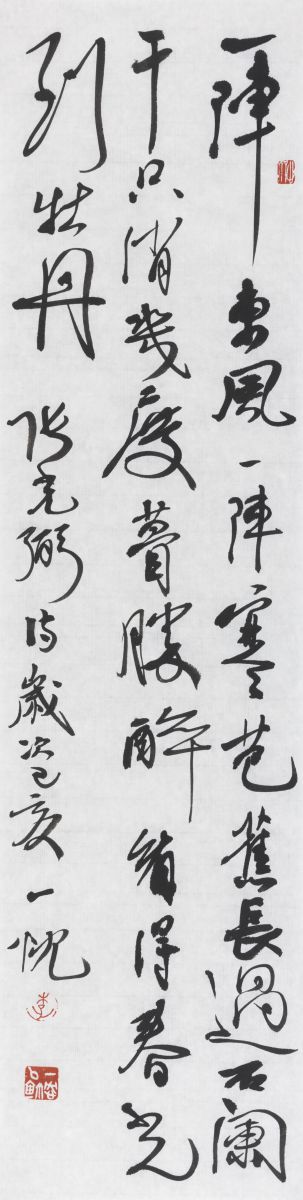 一陣東風一陣寒芭蕉長過石闌
干只消幾度瞢騰醉看得春光
到牡丹 张光弼诗歲次己亥一忱
李